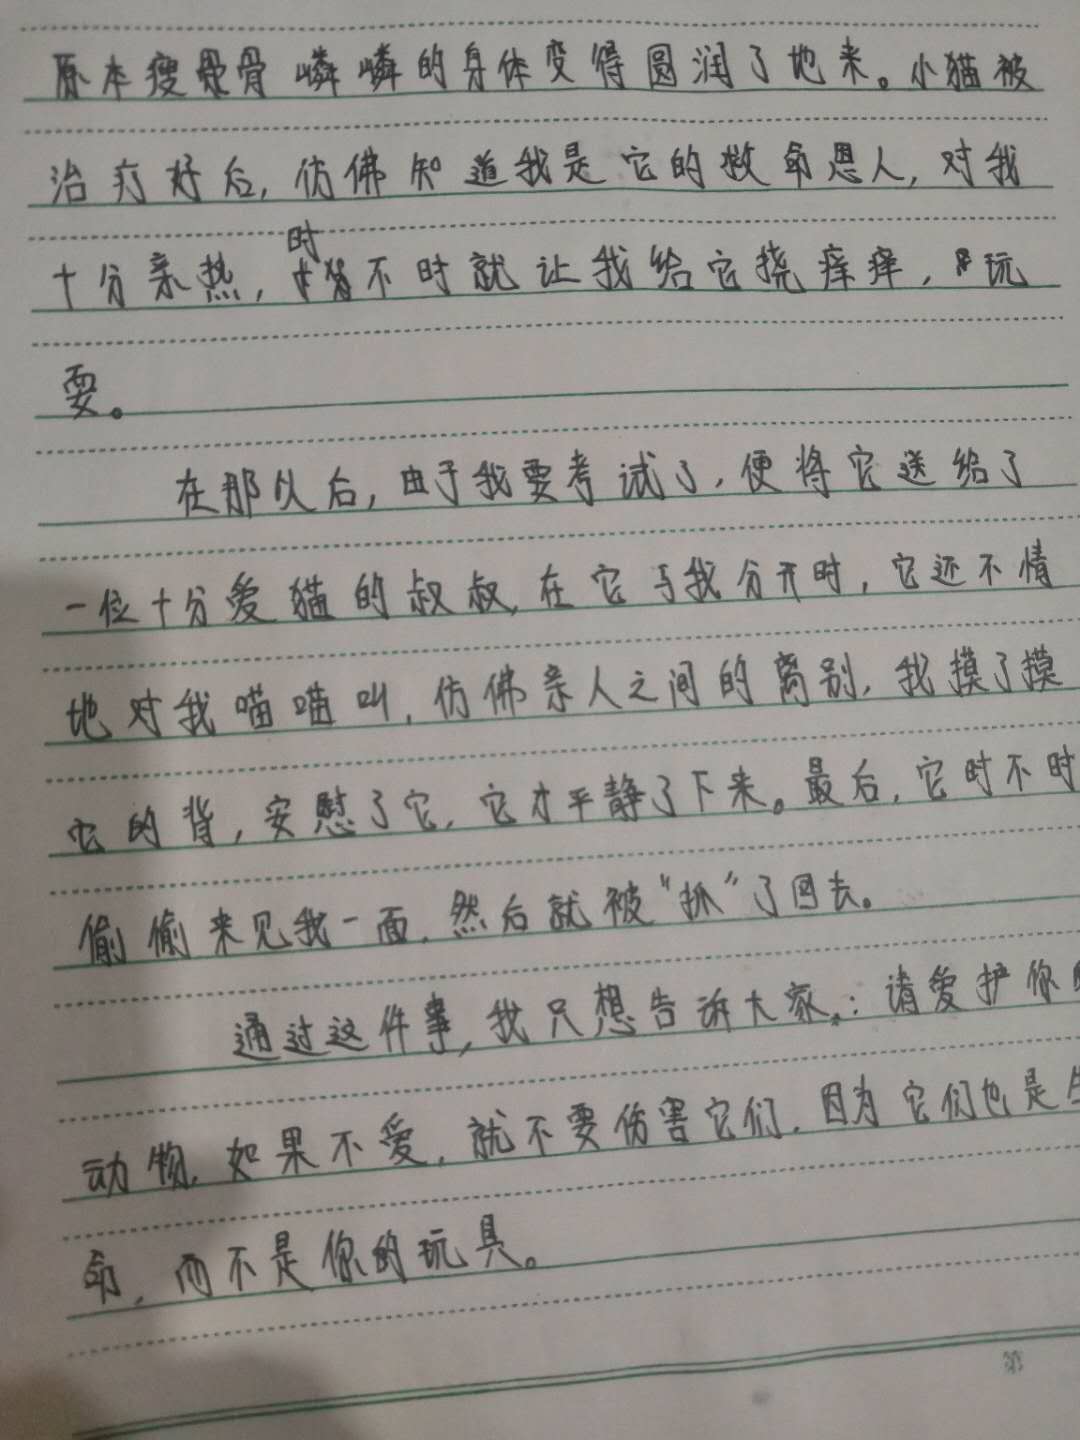 原本瘦骨嶙嶙的身体变得圆润了地来。小猫被
治疗好后,仿佛知道我是它的救命恩人,对我
十分亲热,时不时就让我给它挠痒痒,玩
耍。
在那以后,由于我要考试了,便将它送给了
一位十分爱猫的叔叔,在它与我分开时,它还不情
地对我喵喵叫,仿佛亲人之间的离别,我摸了摸
它的背,安慰了它,它才平静了下来。最后,它时不时
偷偷来见我一面,然后就被“抓”了回去。
通过这件事,我只想告诉大家:请爱护你
动物,如果不爱,就不要伤害它们,因为它们也是生
命,而不是你的玩具。
第